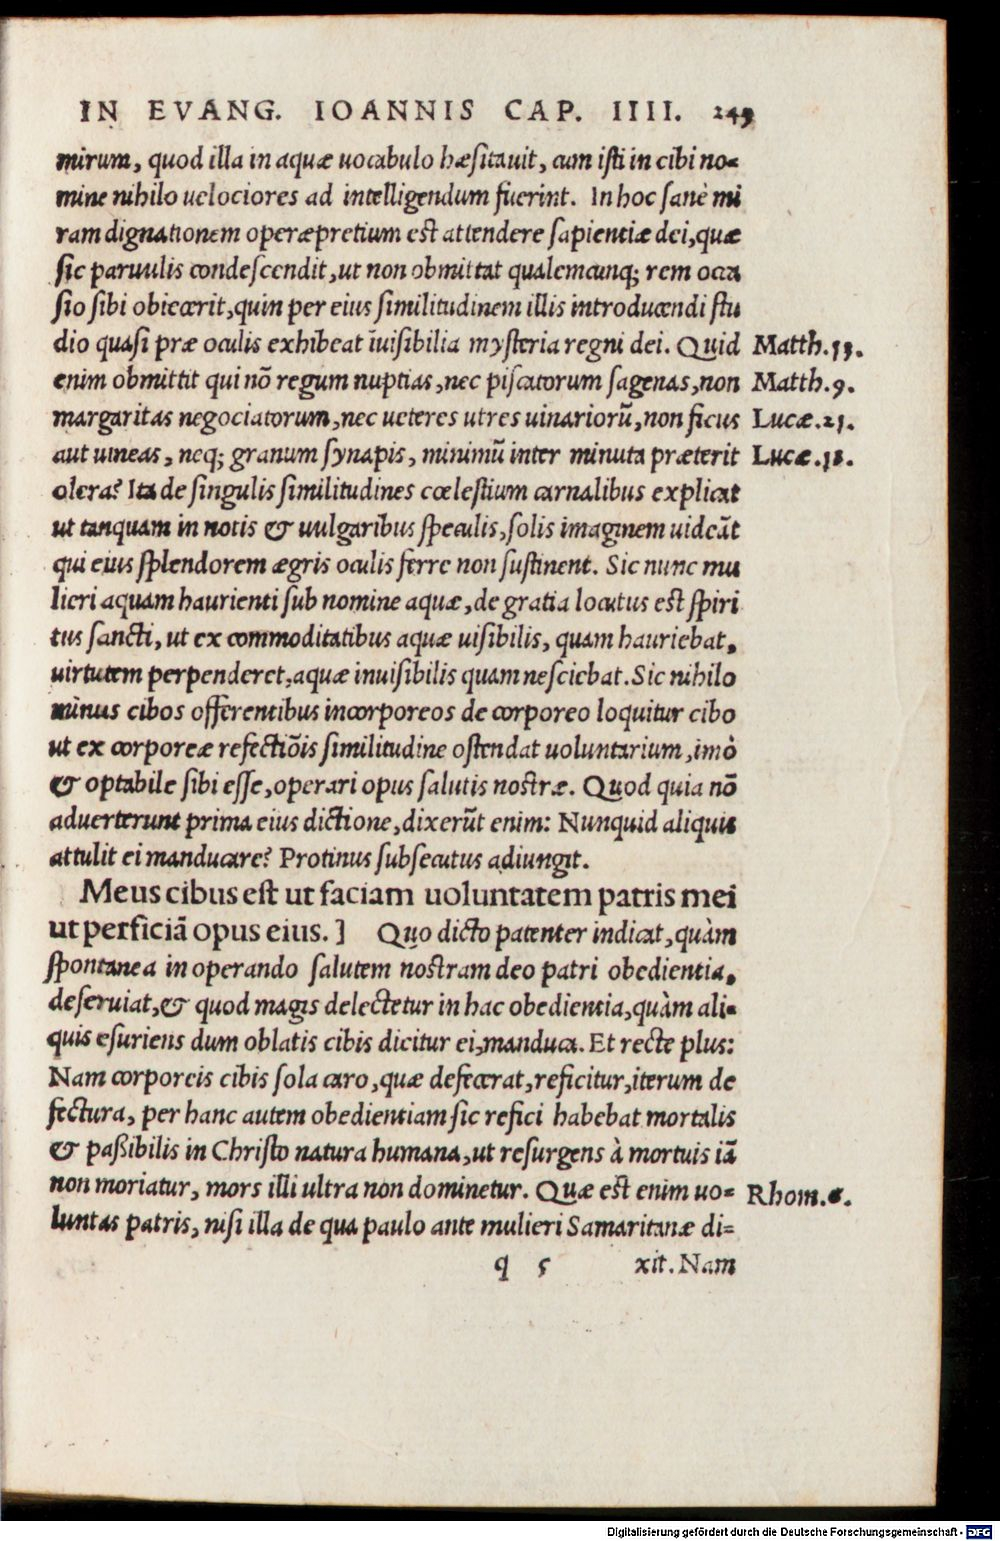 IN EVANG. IOANNIS CAP. IIII. 249
mirum, quod illa in aquæ uocabulo hæsitauit, cum isti in cibi no=
mine nihilo uelociores ad intelligendum fuerint. In hoc sanè mi
ram dignationem operæpretium est attendere sapientiæ dei, quæ
sic paruulis condescendit, ut non obmittat qualemcunq; rem occa
sio sibi obiecerit, quin per eius similitudinem illis introducendi stu
dio quasi præ oculis exhibeat īuisibilia mysteria regni dei. Quid Matth.13.
enim obmittit qui nõ regum nuptias, nec piscatorum sagenas, non Matth.9.
margaritas negociatorum, nec ueteres utres uinariorũ, non ficus Lucæ.21.
aut uineas, neq; granum synapis, minimũ inter minuta præterit Lucæ.18.
olera? Ita de singulis similitudines cœlestium carnalibus explicat
ut tanquam in notis & uulgaribus speculis, solis imaginem uideāt
qui eius splendorem ægris oculis ferre non sustinent. Sic nunc mu
lieri aquam haurienti sub nomine aquæ, de gratia locutus est spiri
tus sancti, ut ex commoditatibus aquæ uisibilis, quam hauriebat,
uirtutem perpenderet, aquæ inuisibilis quam nesciebat. Sic nihilo
minus cibos offerentibus incorporeos de corporeo loquitur cibo
ut ex corporeæ refectiõis similitudine ostendat uoluntarium, imò
& optabile sibi esse, operari opus salutis nostræ. Quod quia nõ
aduerterunt prima eius dictione, dixerũt enim: Nunquid aliquis
attulit ei manducare? Protinus subsecutus adiungit.
Meus cibus est ut faciam uoluntatem patris mei
ut perficiā opus eius. ] Quo dicto patenter indicat, quàm
spontanea in operando salutem nostram deo patri obedientia,
deseruiat, & quod magis delectetur in hac obedientia, quàm ali=
quis esuriens dum oblatis cibis dicitur ei, manduca. Et recte plus:
Nam corporeis cibis sola caro, quæ defecerat, reficitur, iterum de
fectura, per hanc autem obedientiam sic refici habebat mortalis
& paßibilis in Christo natura humana, ut resurgens à mortuis iā
non moriatur, mors illi ultra non dominetur. Quæ est enim uo= Rhom.6.
luntas patris, nisi illa de qua paulo ante mulieri Samaritanæ di=
q 5 xit. Nam
Digitalisierung gefördert durch die Deutsche Forschungsgemeinschaft - DFG